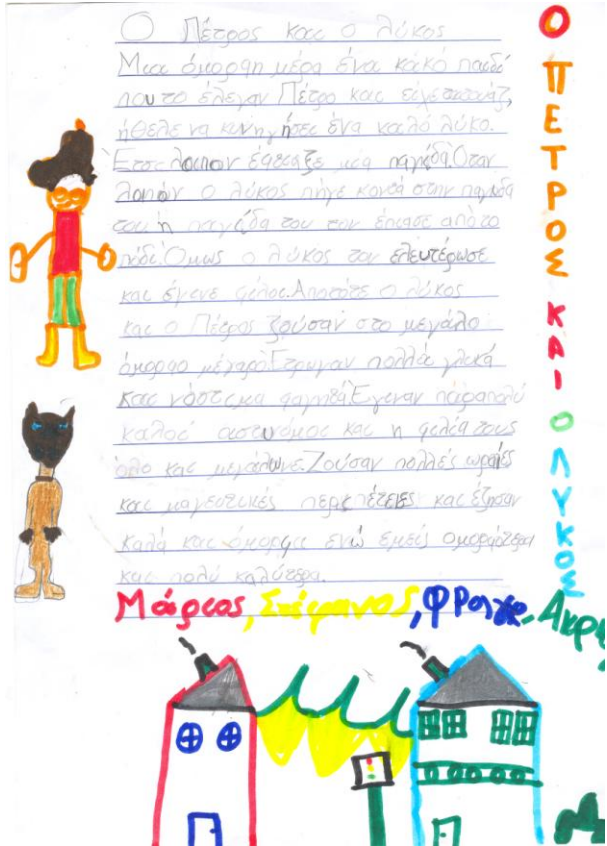 Ο Πέτρος και ο λύκος
Μια όμορφη μέρα ένα κακό παιδί
που το έλεγαν Πέτρο και είχε τατουάζ,
ήθελε να κυνηγήσει ένα καλό λύκο.
Έτσι λοιπόν έφτιαξε μία παγίδα. Όταν
λοιπόν ο λύκος πήγε κοντά στην παγίδα
του η παγίδα του τον έπιασε από το
πόδι. Όμως ο λύκος τον ελευτέρωσε
και έγινε φίλος. Από τότε ο λύκος
και ο Πέτρος ζούσαν στο μεγάλο
όμορφο μέγαρο. Έτρωγαν πολλά γλυκά
και νόστιμα φαγητά. Έγιναν πάρα πολύ
καλοί αστυνόμοι και η φιλία τους
όλο και μεγάλωνε. Ζούσαν πολλές ωραίες
και μαγευτικές περιπέτειες και έζησαν
καλά και όμορφα ενώ εμείς ομορφότερα
και πολύ καλύτερα.
Μάριος, Στέφανος, Φραγκ,
Ο ΠΕΤΡΟΣ ΚΑΙ Ο ΛΥΚΟΣ